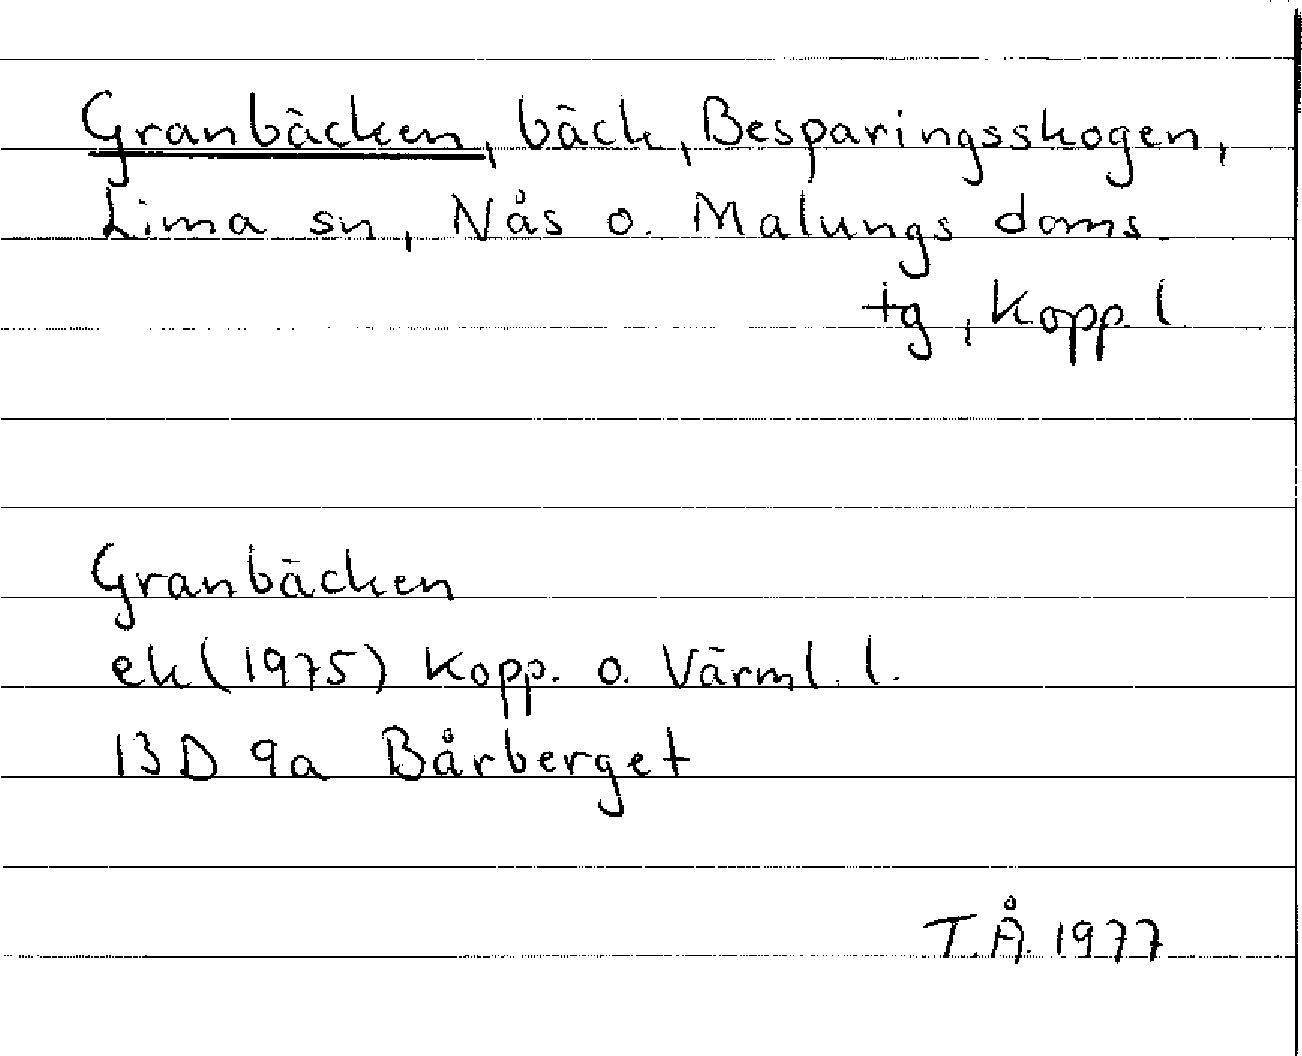 Granbäcken, bäck, Besparingsskogen,
Lima sn, Nås o. Malungs doms
tg, Kopp. l.
Granbäcken
ek (1975) Kopp. o. Värml. l.
13D 9a Bårberget
T.Å. 1977